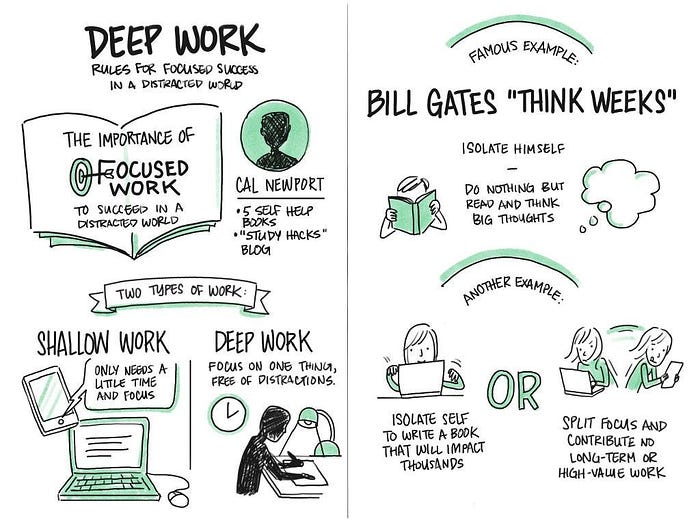 DEEP WORK
RULES FOR FOCUSED SUCCESS
IN A DISTRACTED WORLD
THE IMPORTANCE OF
FOCUSED
WORK
TO SUCCEED IN A
DISTRACTED WORLD
CAL NEWPORT
• 5 SELF HELP
BOOKS
• "STUDY HACKS"
BLOG
TWO TYPES OF WORK:
SHALLOW WORK
ONLY NEEDS A
LITTLE TIME
AND FOCUS
DEEP WORK
FOCUS ON ONE THING,
FREE OF DISTRACTIONS.
FAMOUS EXAMPLE:
BILL GATES "THINK WEEKS"
ISOLATE HIMSELF
—
DO NOTHING BUT
READ AND THINK
BIG THOUGHTS
ANOTHER EXAMPLE:
ISOLATE SELF
TO WRITE A BOOK
THAT WILL IMPACT
THOUSANDS
OR
SPLIT FOCUS AND
CONTRIBUTE NO
LONG-TERM OR
HIGH-VALUE WORK